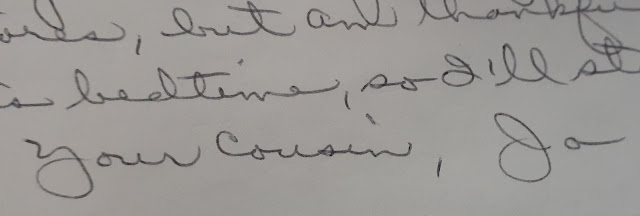 but am thankfu
bedtime, so I'll st
Your Cousin, Jo